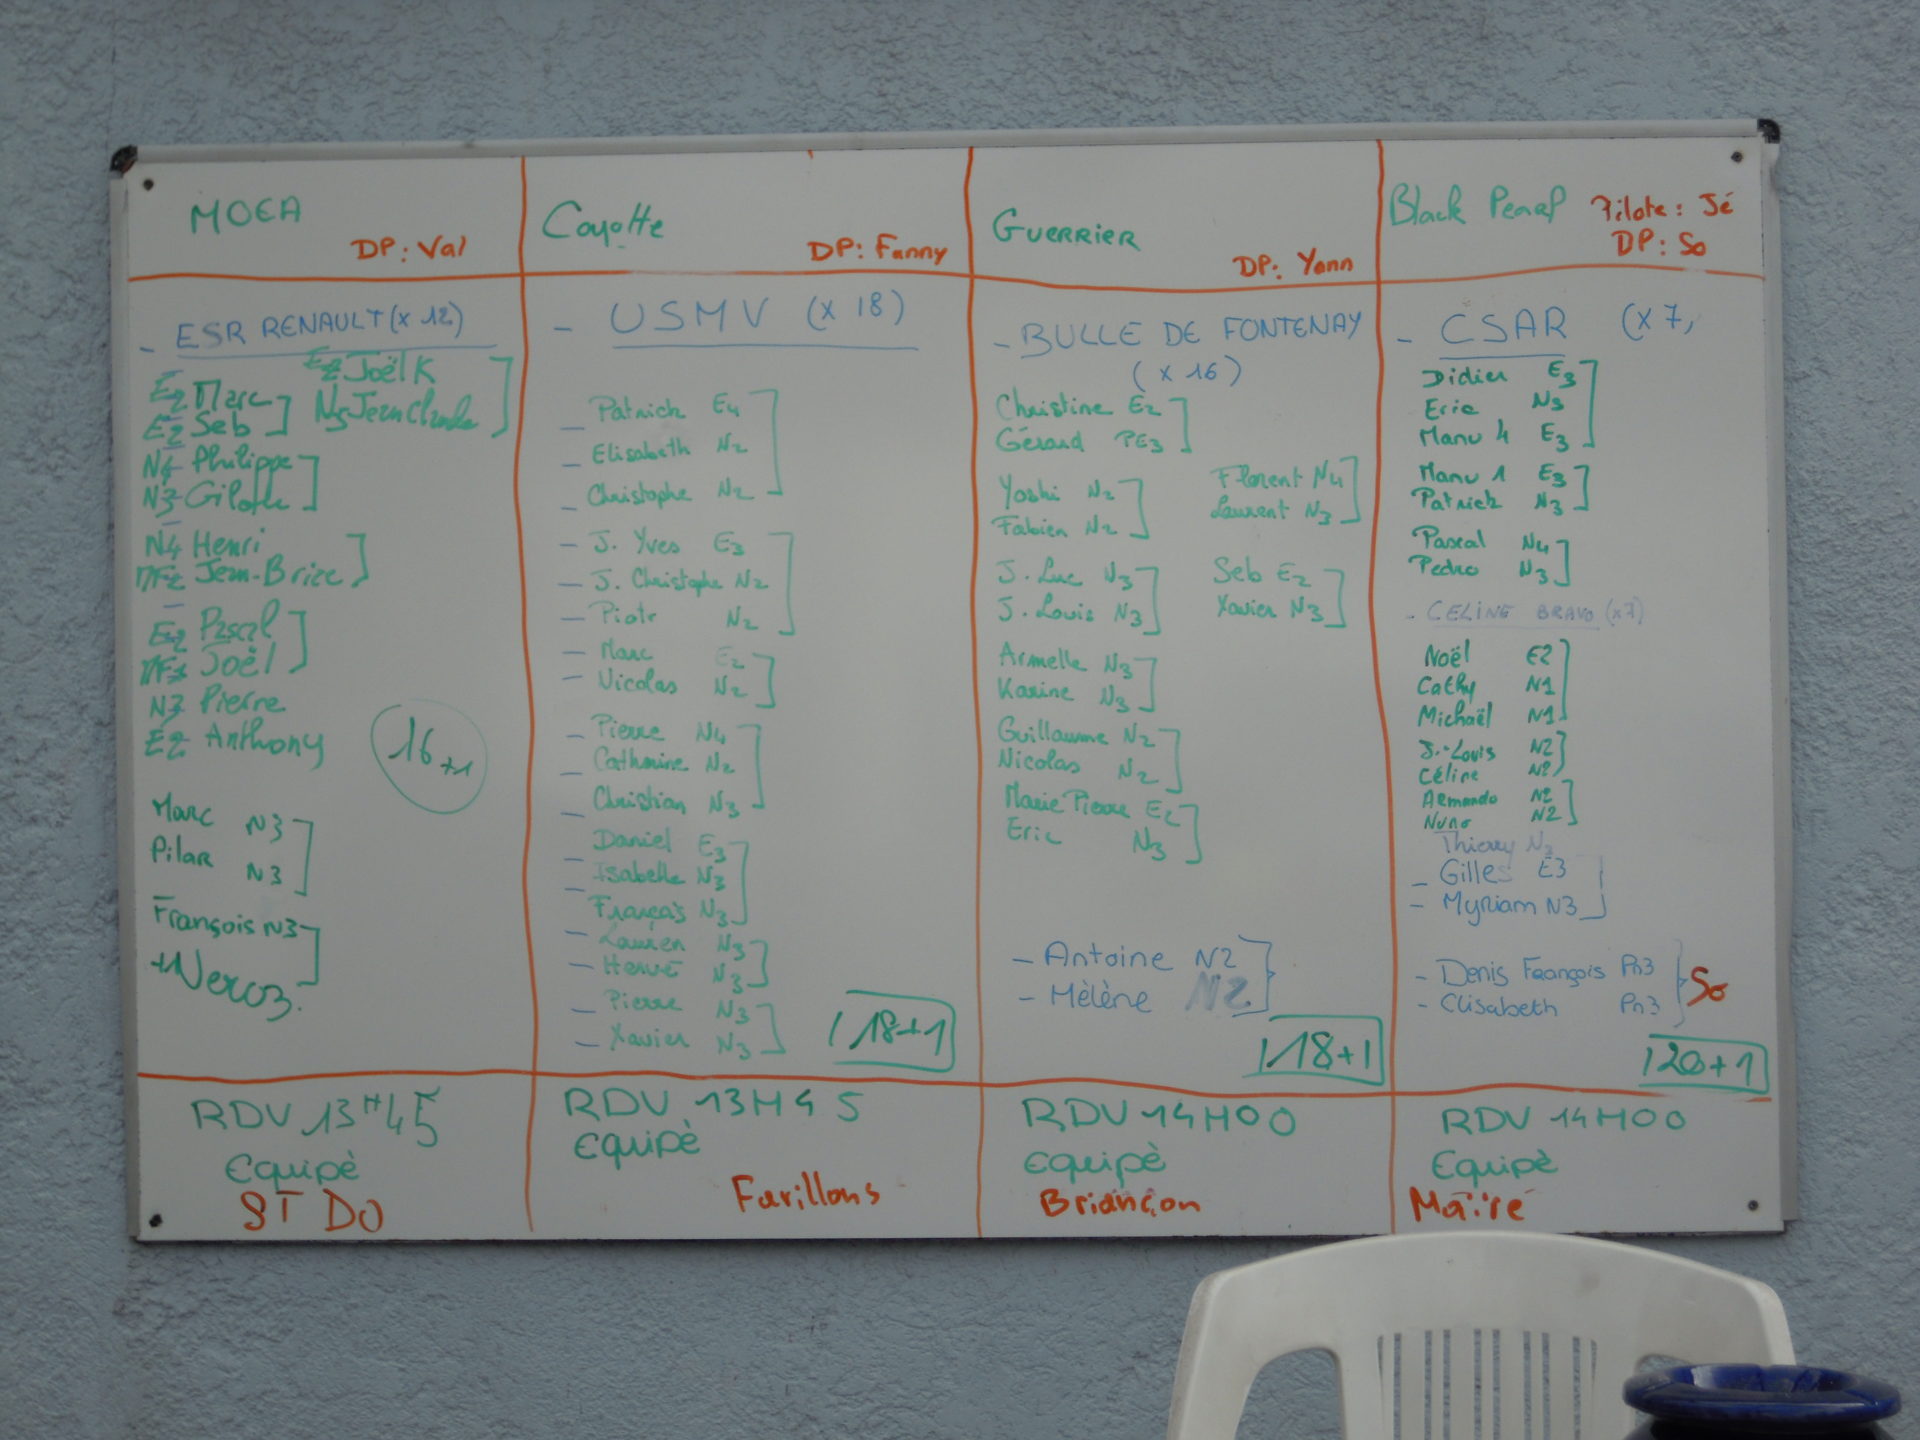 MOEA
DP: Val
- ESR RENAULT (x 12)
E2 Joël K
E2 Marc
N3 Jean Claude
E2 Seb
N4 Philippe
N3
N4 Henri
MF2 Jean-Brice
E2 Pascal
MF1 Joël
N3 Pierre
E2 Anthony
16+1
Marc N3
Pilar N3
François N3
RDV 13H45
Equipè
ST DO
Coyotte
DP: Fanny
- USMV (x 18)
- Patrick E4
- Elisabeth N2
- Christophe N2
- J. Yves E3
- J. Christophe N2
- Piotr N2
- Marc E2
- Nicolas N2
- Pierre N4
- Catherine N2
- Christian N3
- Daniel E3
- Isabelle N3
- François N3
- Lauren N3
- Hervé N3
- Pierre N3
- Xavier N3
18+1
RDV 13H45
Equipè
Farillons
GUERRIER
DP: Yann
- BULLE DE FONTENAY
(x 16)
Christine E2
Gérard PE3
Yoshi N2
Fabien N2
Florent N4
Laurent N3
J. Luc N3
J. Louis N3
Seb E2
Xavier N3
Armelle N3
Karine N3
Guillaume N2
Nicolas N2
Marie Pierre E2
Eric N3
- Antoine N2
- Mèlène N2
18+1
RDV 14H00
Equipè
Briançon
Black Pearl
Pilote: Jé
DP: So
- CSAR (x 7)
Didier E3
Eric N3
Manu 4 E3
Manu 1 E3
Patrick N3
Pascal N4
Pedro N3
- CELINE BRAVO (x7)
Noël E2
Cathy N1
Michaël N1
J.-Louis N2
Céline N2
Armando N2
Nuno N2
Thierry N3
- Gilles E3
- Myriam N3
- Denis François Pn3
- Elisabeth Pn3
So
20+1
RDV 14H00
Equipè
Maïré